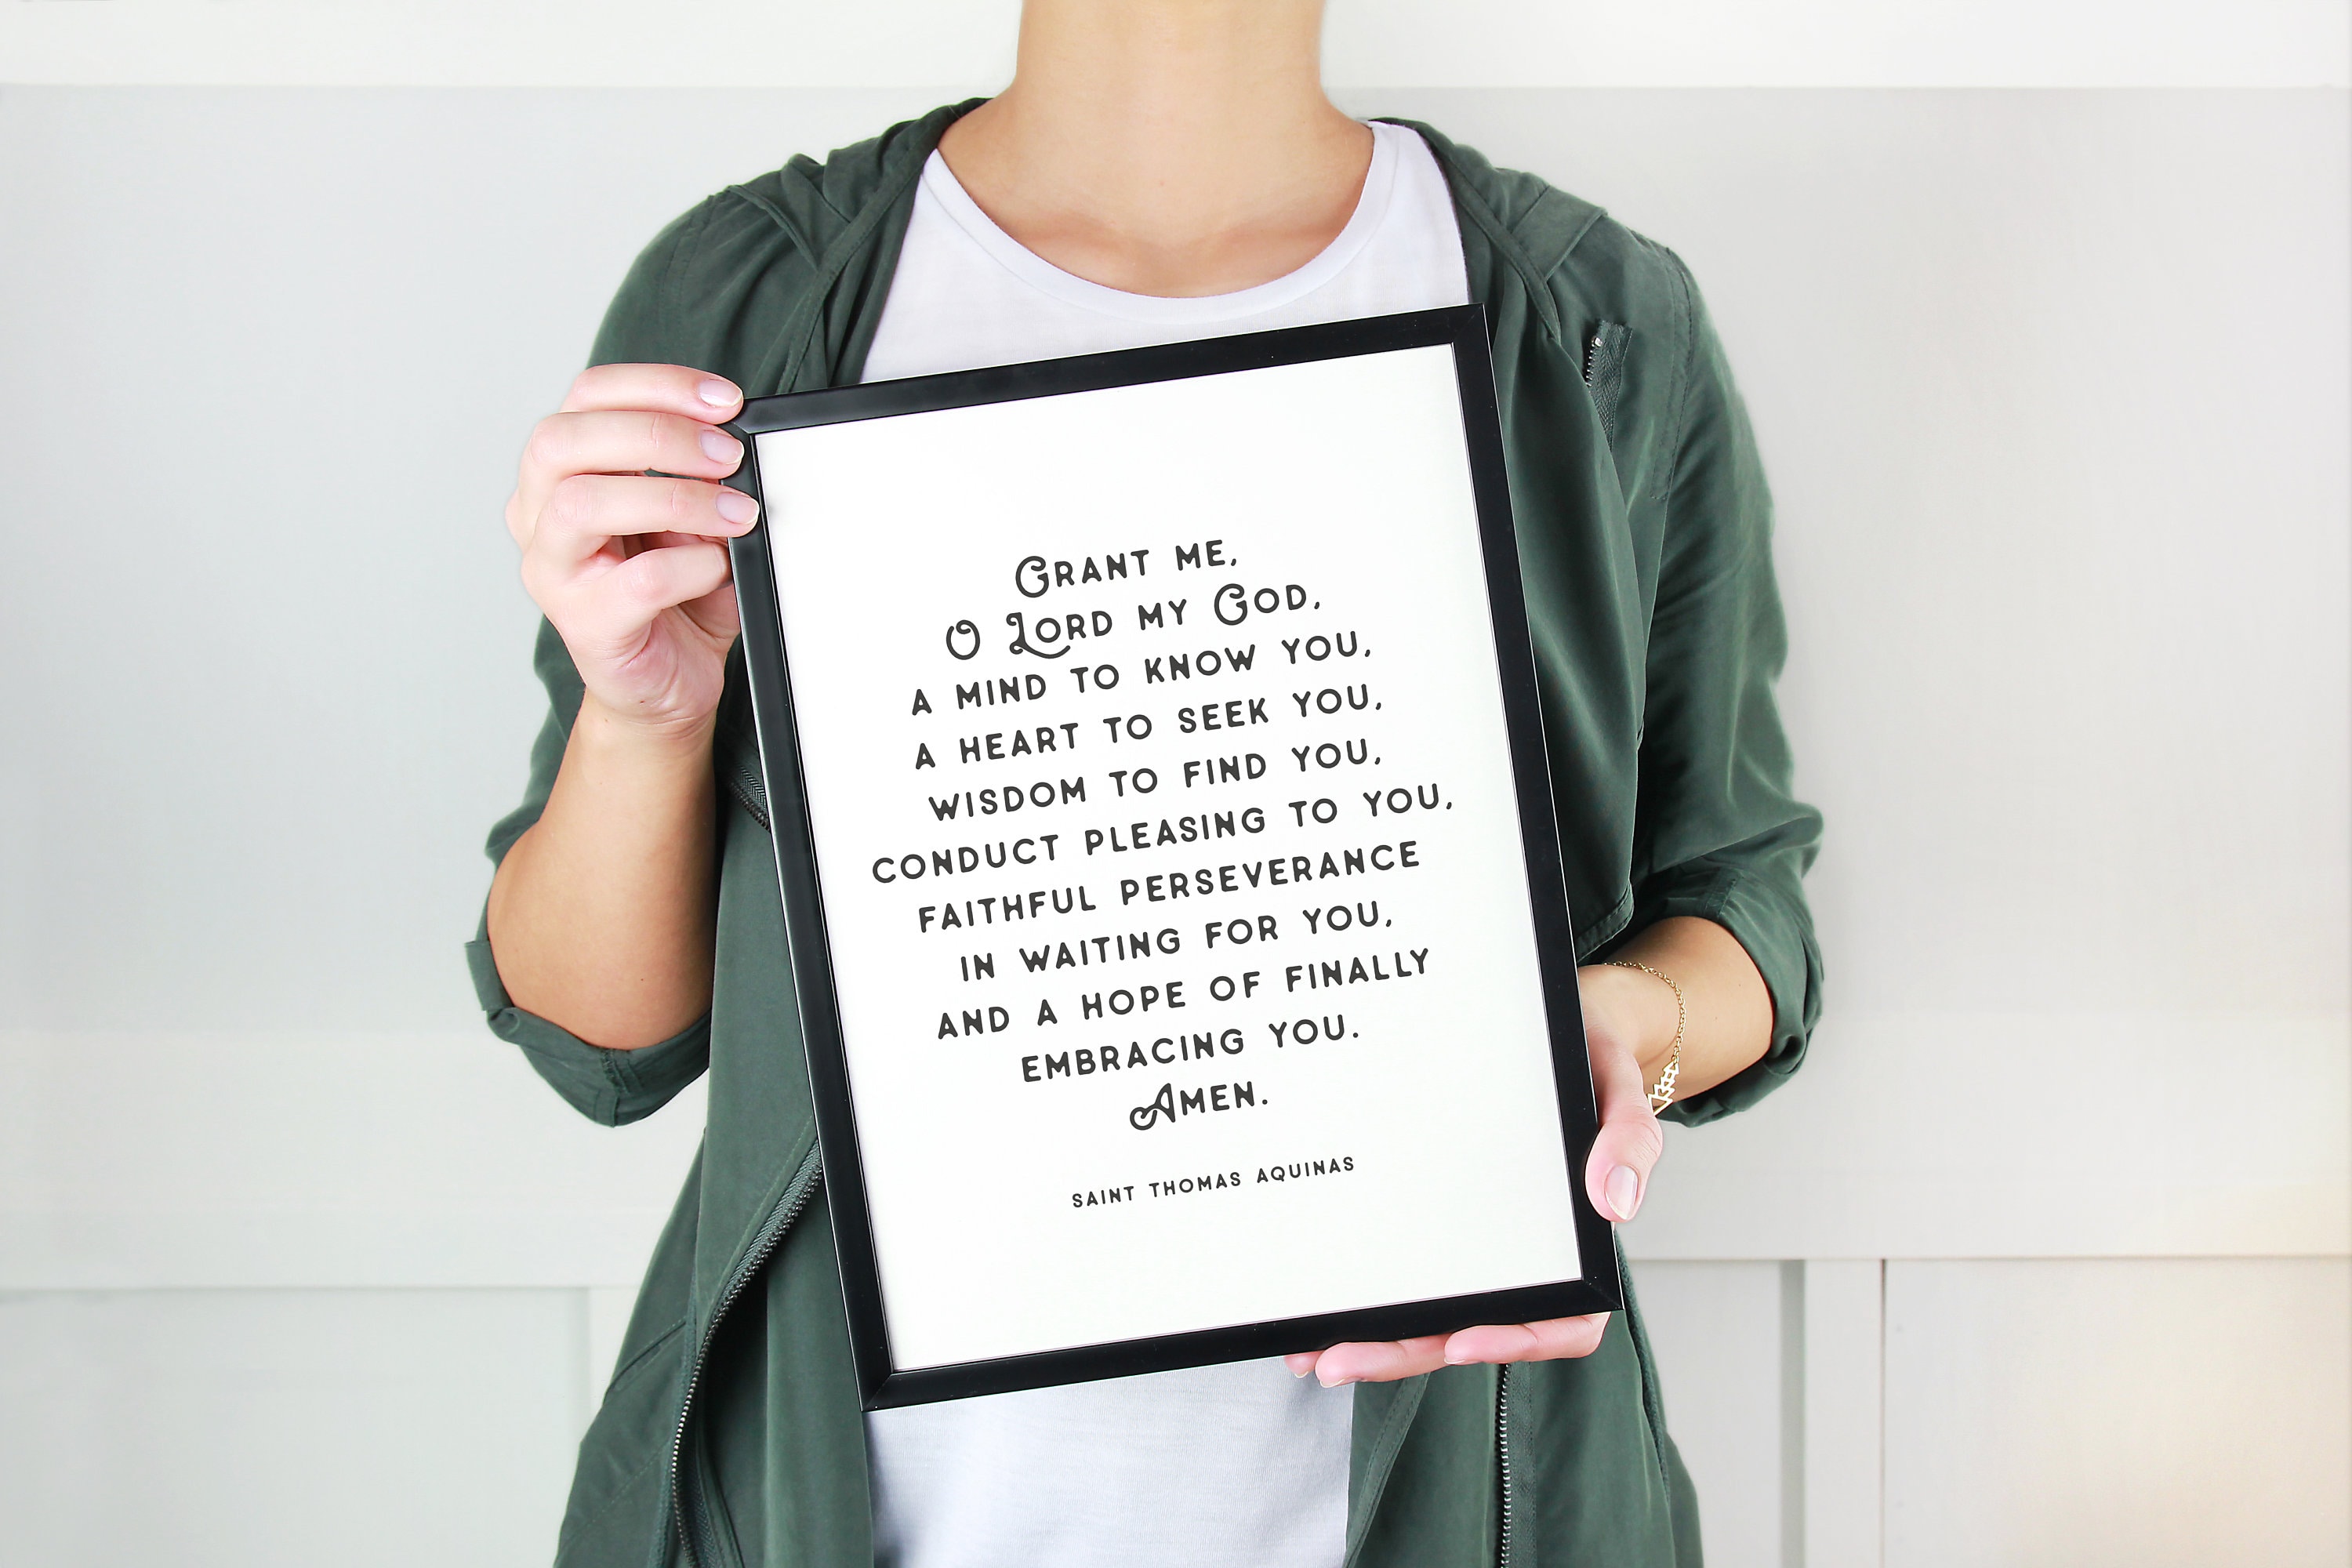 Grant me,
O Lord my God,
a mind to know you,
a heart to seek you,
wisdom to find you,
conduct pleasing to you,
faithful perseverance
in waiting for you,
and a hope of finally
embracing you.
Amen.
Saint Thomas Aquinas